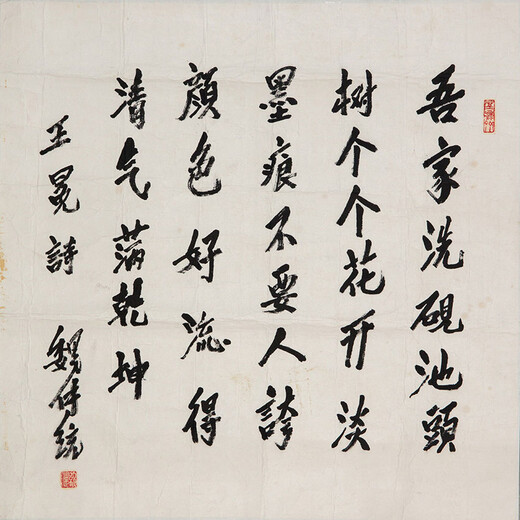 吾家洗硯池頭
树个个花开淡
墨痕不要人誇
顔色好流得
清气满乾坤
王冕詩 魏传统